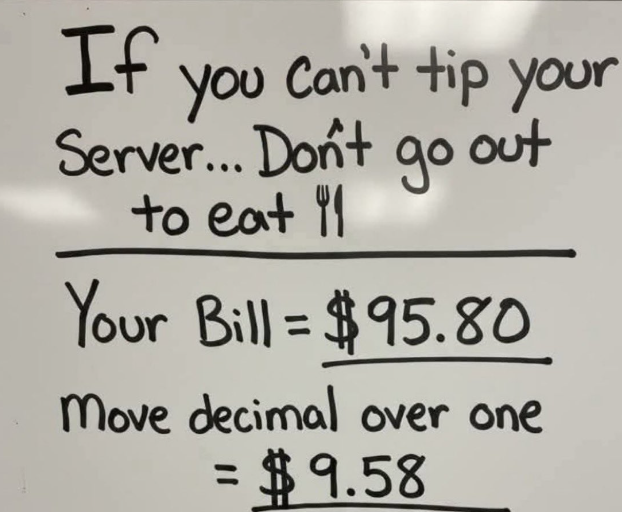 If you can't tip your
Server... Don't go out
to eat
Your Bill = $95.80
Move decimal over one
= $9.58